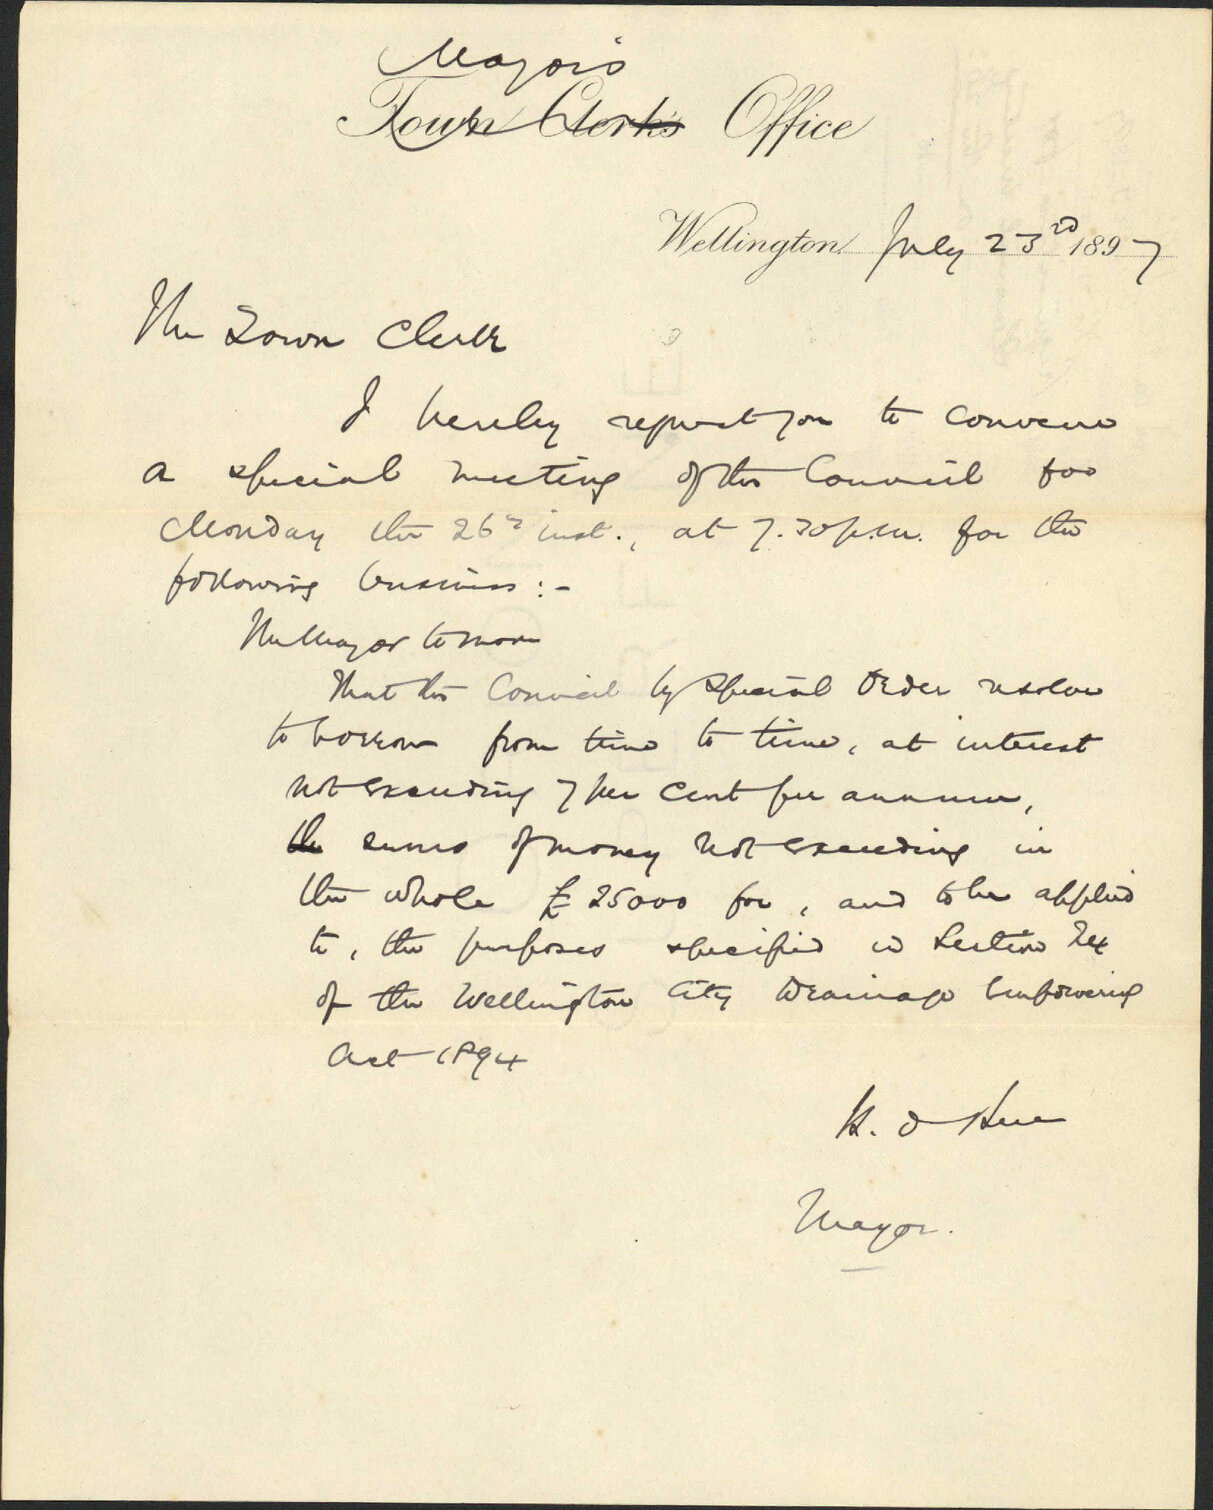 Mayor's
Town Clerk's Office
Wellington July 23rd 1897
The Town Clerk
I hereby request you to convene
a special meeting of the Council for
Monday the 26th inst., at 7.30 p.m. for the
following business :-
The Mayor to move
That this Council by Special Order resolve
to borrow from time to time, at interest
not exceeding 7 per cent per annum,
the sums of money not exceeding in
the whole £25000 for, and to be applied
to, the purposes specified in Section
of the Wellington City Drainage Empowering
Act 1894
Mayor.